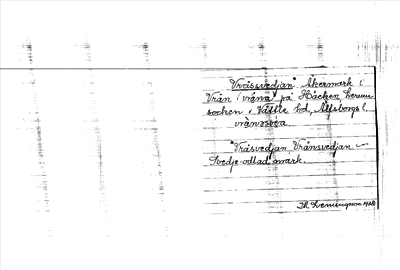 Vråssvedjan. Åkermark i
Vrån (vråna) på Häcken, Lerums
socken, Vättle hd, Älfsborgs l.
vrånsvea
Vråsvedjan Vrånsvedjan –
Svedje-odlad mark.
1928